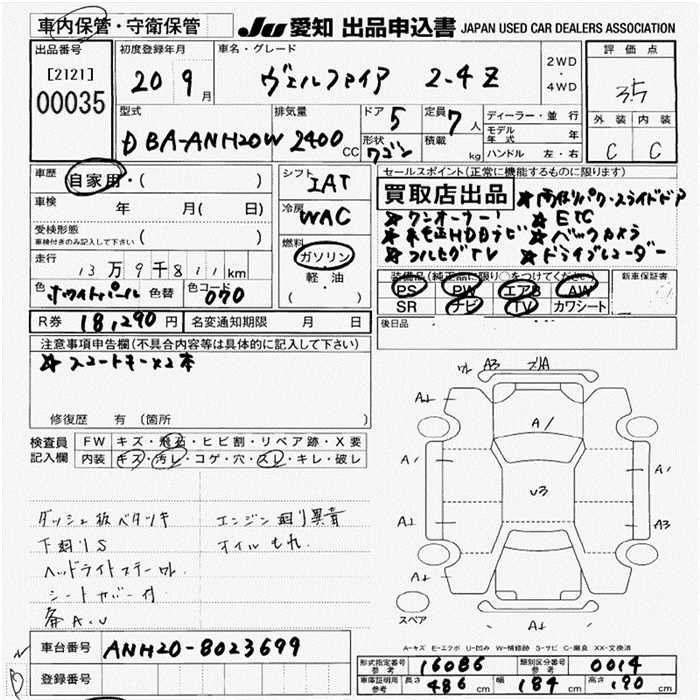 車内保管・守衛保管 JU 愛知 出品申込書 JAPAN USED CAR DEALERS ASSOCIATION
出品番号 初度登録年月 車名・グレード 2WD ・ 4WD 評価点
[2121] 00035 20 9月 ヴェルファイア 2-4Z 3.5
型式 排気量 ドア 5 定員 7人 ディーラー・並行 外装 内装
DBA-ANH20W 2400CC 形状 ワゴン 積載 kg モデル年式 年 ハンドル 左・右 C C
車歴 自家用・( ) シフト IAT セールスポイント(正常に機能するものに限ります)
車検 年 月( 日) 冷房 WAC 買取店出品 ★両側パワースライドドア
★ワンオーナー! ★ETC
受検形態 車検付きのみ記入して下さい ( ) 燃料 ガソリン・軽油 ( ) ★純正HDDナビ ★バックカメラ
★フルセグTV ★ドライブレコーダー
走行 13万9千811km 装備品(純正品に限り○をつけてください) 新車保証書
色 ホワイトパール 色替 色コード 070 PS PW エアB AW
SR ナビ TV カワシート
R券 18,290円 名変通知期限 月 日 後日品
注意事項申告欄(不具合内容等は具体的に記入して下さい)
★スマートキー×2本
修復歴 有 (箇所
検査員記入欄 FW キズ・飛石・ヒビ割・リペア跡・X要
内装 キズ・汚レ・コゲ・穴・スレ・キレ・破レ
A3
A1
A1
A1
A1
A3
U3
ダッシュ板ベタツキ エンジン廻り異音
下廻りS オイルもれ
シートカバー付
スペア
A-キズ E-エクボ U-凹み W-補修跡 S-サビ C-腐食 XX-交換済
車台番号 ANH20-8023699
登録番号
形式指定番号 参考 16086 類別区分番号 参考 0014
車庫証明用 参考 長さ 486cm 幅 184cm 高さ 190cm